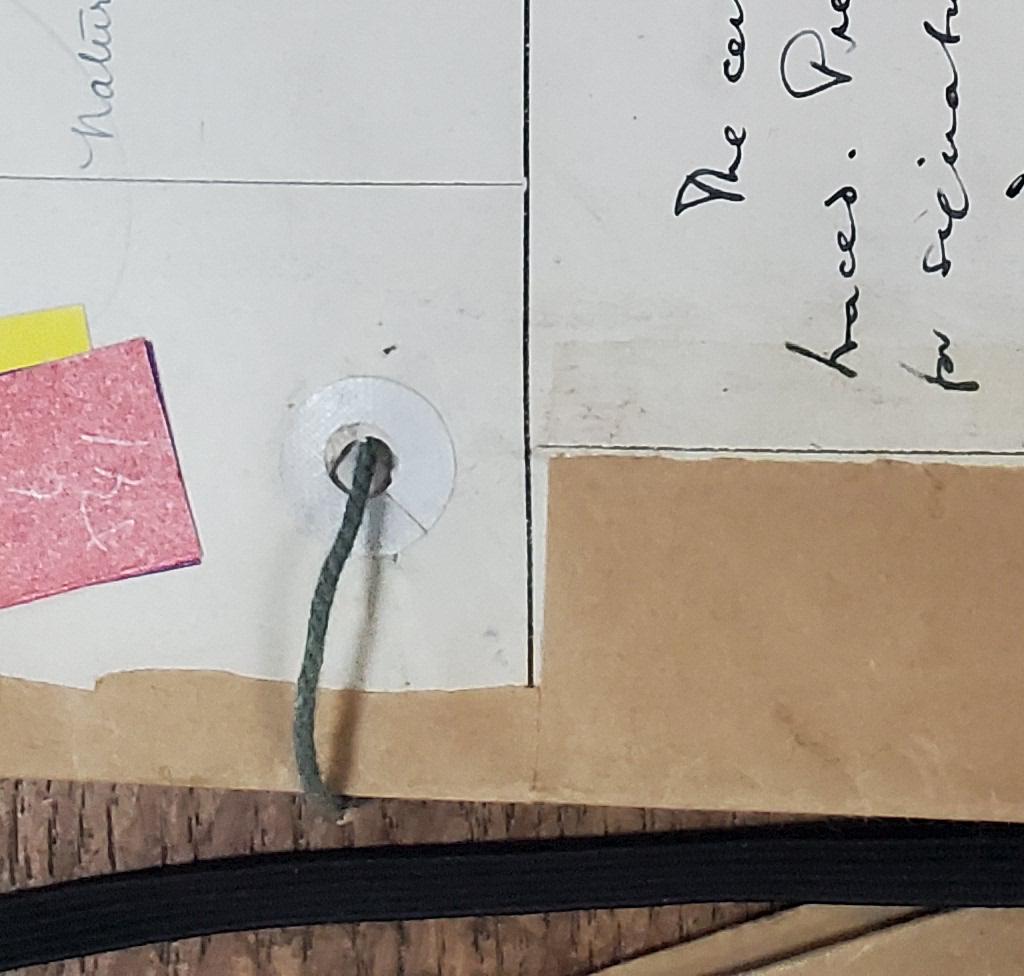 Natur
The cen
traces. Pre
for signatu